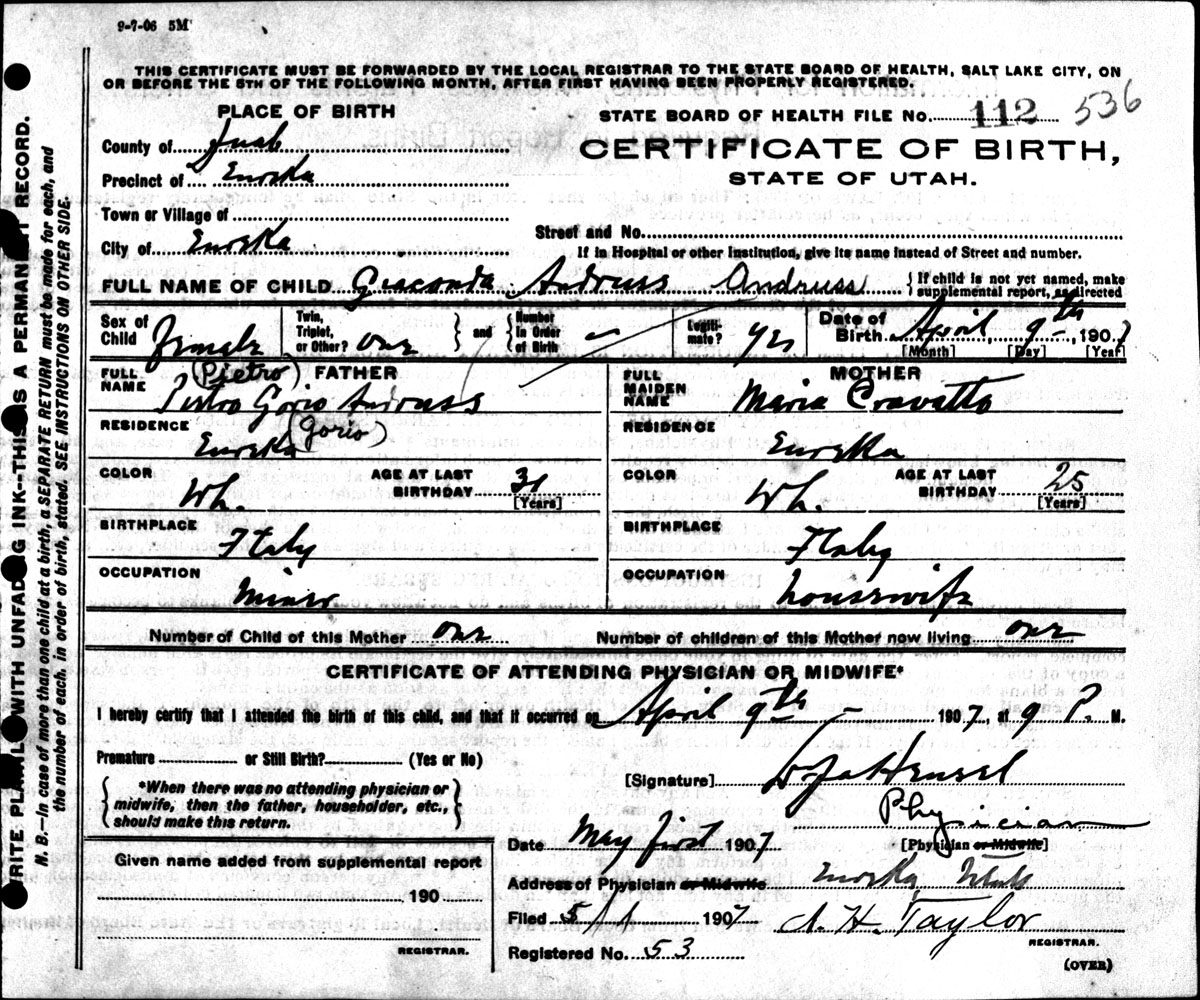 9-7-06 5M
THIS CERTIFICATE MUST BE FORWARDED BY THE LOCAL REGISTRAR TO THE STATE BOARD OF HEALTH, SALT LAKE CITY, ON
OR BEFORE THE 5TH OF THE FOLLOWING MONTH, AFTER FIRST HAVING BEEN PROPERLY REGISTERED.
PLACE OF BIRTH
STATE BOARD OF HEALTH FILE No. 112 536
County of Juab
CERTIFICATE OF BIRTH,
Precinct of Eureka
STATE OF UTAH.
Town or Village of
Street and No.
City of Eureka
If in Hospital or other Institution, give its name instead of Street and number.
FULL NAME OF CHILD Giaconda Andruss Andruss {If child is not yet named, make
supplemental report, as directed
Sex of Child Female
Twin, Triplet, or Other? one } and { Number In Order of Birth —
Legitimate? yes
Date of Birth April 9th, 1907
[Month] [Day] [Year]
FULL NAME (Pietro) FATHER
Pietro Gorio Andruss
FULL MAIDEN NAME MOTHER
Maria Cravatto
RESIDENCE Eureka (Gorio)
RESIDENCE Eureka
COLOR Wh. AGE AT LAST BIRTHDAY 31 [Years]
COLOR Wh. AGE AT LAST BIRTHDAY 25 [Years]
BIRTHPLACE Italy
BIRTHPLACE Italy
OCCUPATION Miner
OCCUPATION housewife
Number of Child of this Mother one
Number of children of this Mother now living one
CERTIFICATE OF ATTENDING PHYSICIAN OR MIDWIFE*
I hereby certify that I attended the birth of this child, and that it occurred on April 9th — 1907, at 9 P. M.
Premature or Still Birth? (Yes or No)
[Signature] Hensel
{ *When there was no attending physician or
midwife, then the father, householder, etc.,
should make this return. }
Physician
Date May first 1907 [Physician or Midwife]
Given name added from supplemental report
190
REGISTRAR.
Address of Physician or Midwife Eureka Utah
Filed 5/1 1907 A. H. Taylor
REGISTRAR.
Registered No. 53
(OVER)
WRITE PLAINLY WITH UNFADING INK--THIS IS A PERMANENT RECORD.
N. B.—In case of more than one child at a birth, a SEPARATE RETURN must be made for each, and
the number of each, in order of birth, stated. SEE INSTRUCTIONS ON OTHER SIDE.